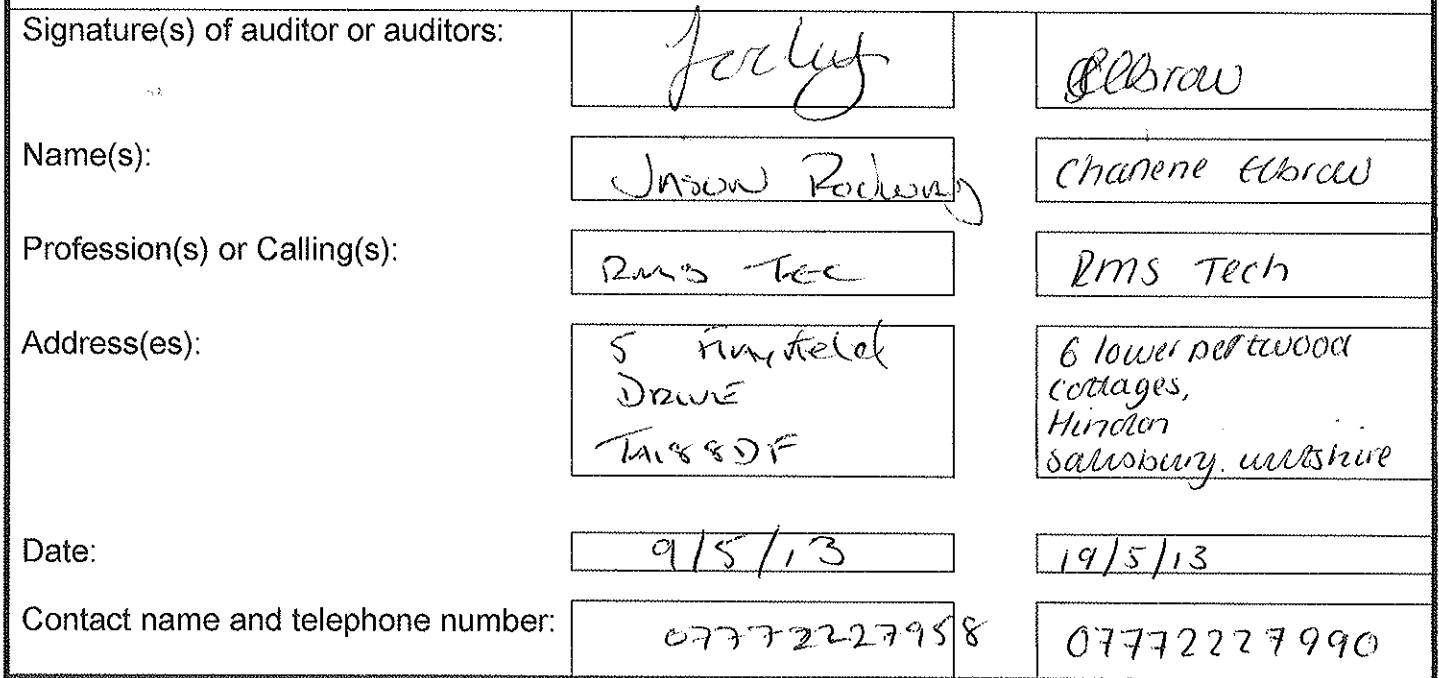 Signature(s) of auditor or auditors:
Elbrow
Name(s):
Jason Rodway
Chanene Elbrow
Profession(s) or Calling(s):
RMS Tec
RMS Tech
Address(es):
5
DRIVE
TA18 8DF
6 lower pertwood
cottages,
Hindon
salisbury. wiltshire
Date:
9/5/13
19/5/13
Contact name and telephone number:
07772227958
07772227990